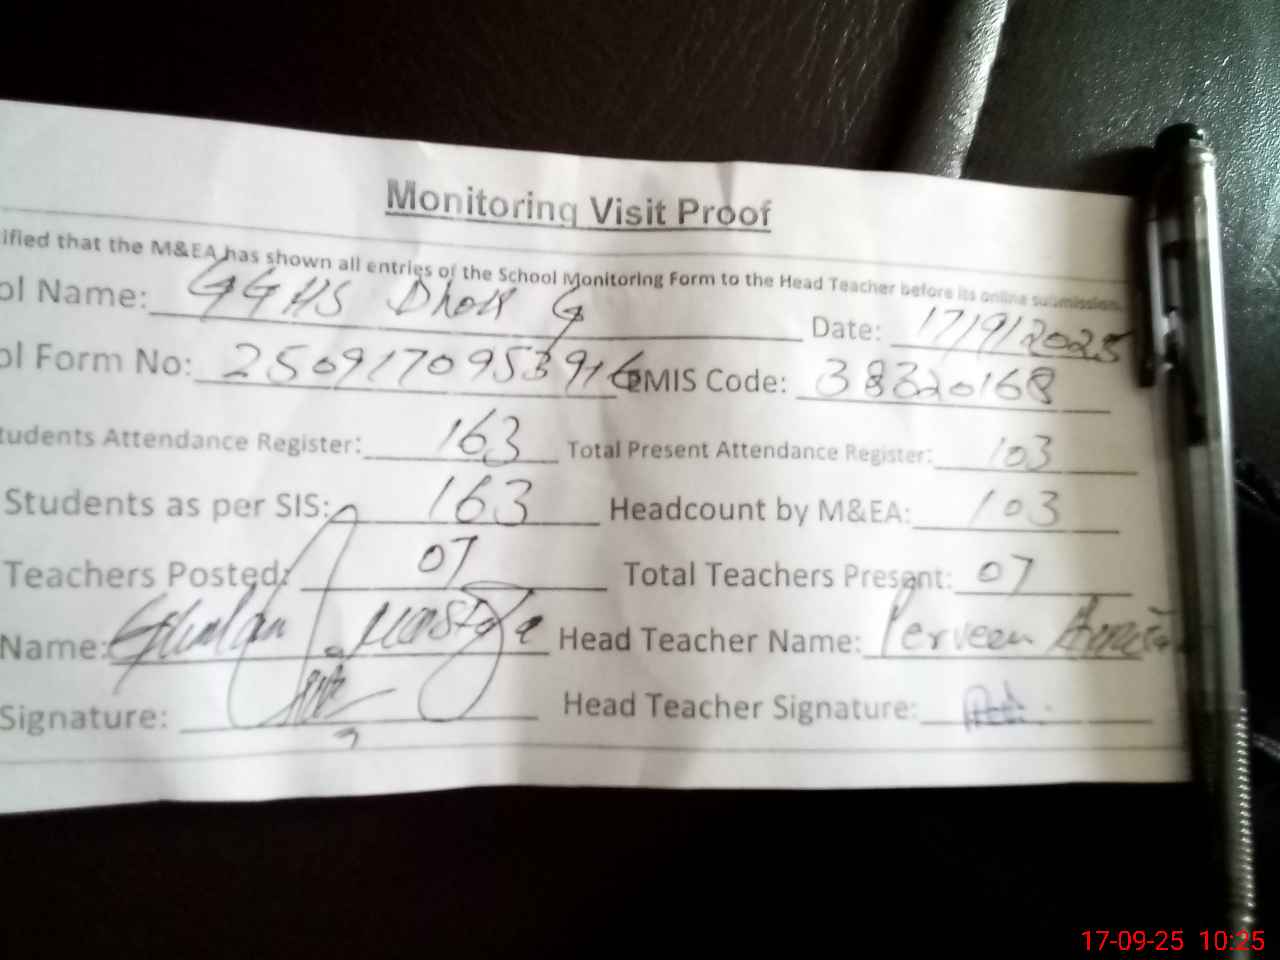 Monitoring Visit Proof
ified that the M&EA has shown all entries of the School Monitoring Form to the Head Teacher before its online submission.
ol Name: GGHS Dhok G Date: 17/9/2025
ol Form No: 2509170953916 EMIS Code: 38320168
tudents Attendance Register: 163 Total Present Attendance Register: 103
Students as per SIS: 163 Headcount by M&EA: 103
Teachers Posted: 07 Total Teachers Present: 07
Name: Ghulam Head Teacher Name: Perveen
Signature: Head Teacher Signature:
17-09-25 10:25